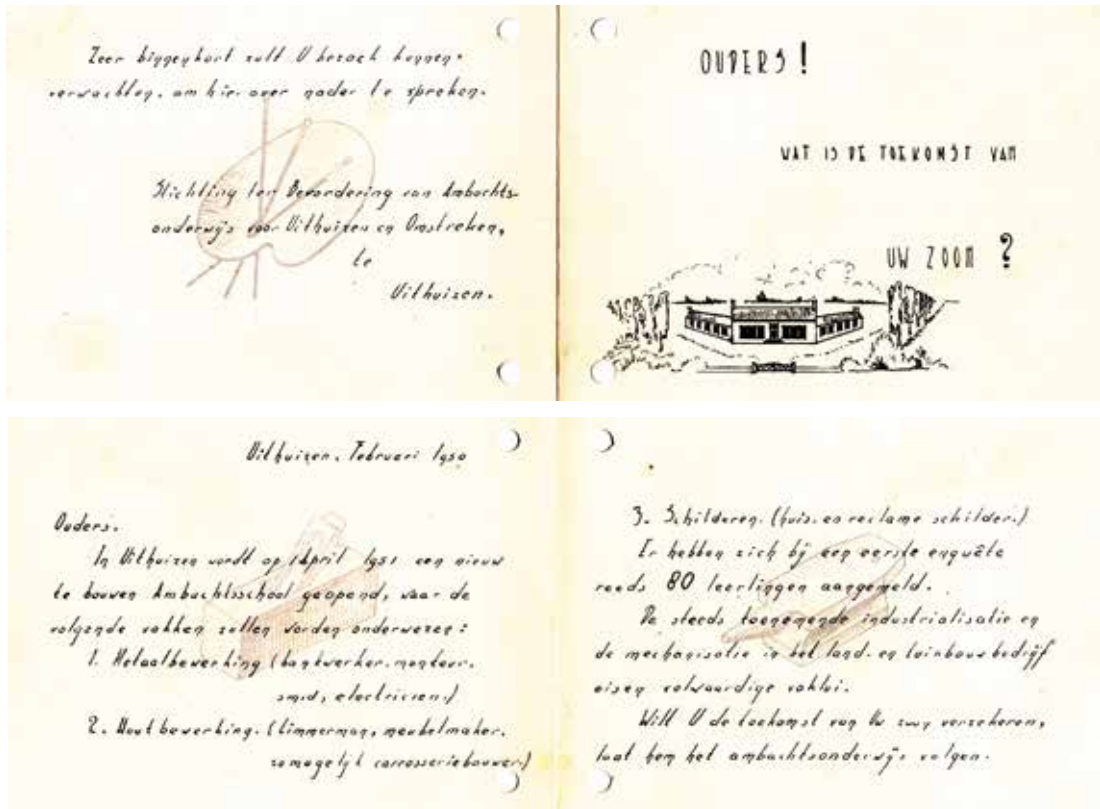 Zeer binnenkort zult U bezoek kunnen
verwachten, om hier over nader te spreken.
Stichting ter Bevordering van Ambachts-
onderwijs voor Uithuizen en Omstreken,
te
Uithuizen.
OUDERS!
WAT IS DE TOEKOMST VAN
UW ZOON?
Uithuizen, Februari 1950
Ouders.
In Uithuizen wordt op 1 April 1951 een nieuw
te bouwen Ambachtsschool geopend, waar de
volgende vakken zullen worden onderwezen:
1. Metaalbewerking (bankwerker, monteur,
smid, electricien.)
2. Houtbewerking. (timmerman, meubelmaker,
zo mogelijk carrosseriebouwer.)
3. Schilderen. (huis- en reclame schilder.)
Er hebben zich bij een eerste enquête
reeds 80 leerlingen aangemeld.
De steeds toenemende industrialisatie en
de mechanisatie in het land- en tuinbouwbedrijf
eisen volwaardige vaklui.
Wilt U de toekomst van Uw zoon verzekeren,
laat hem het ambachtsonderwijs volgen.